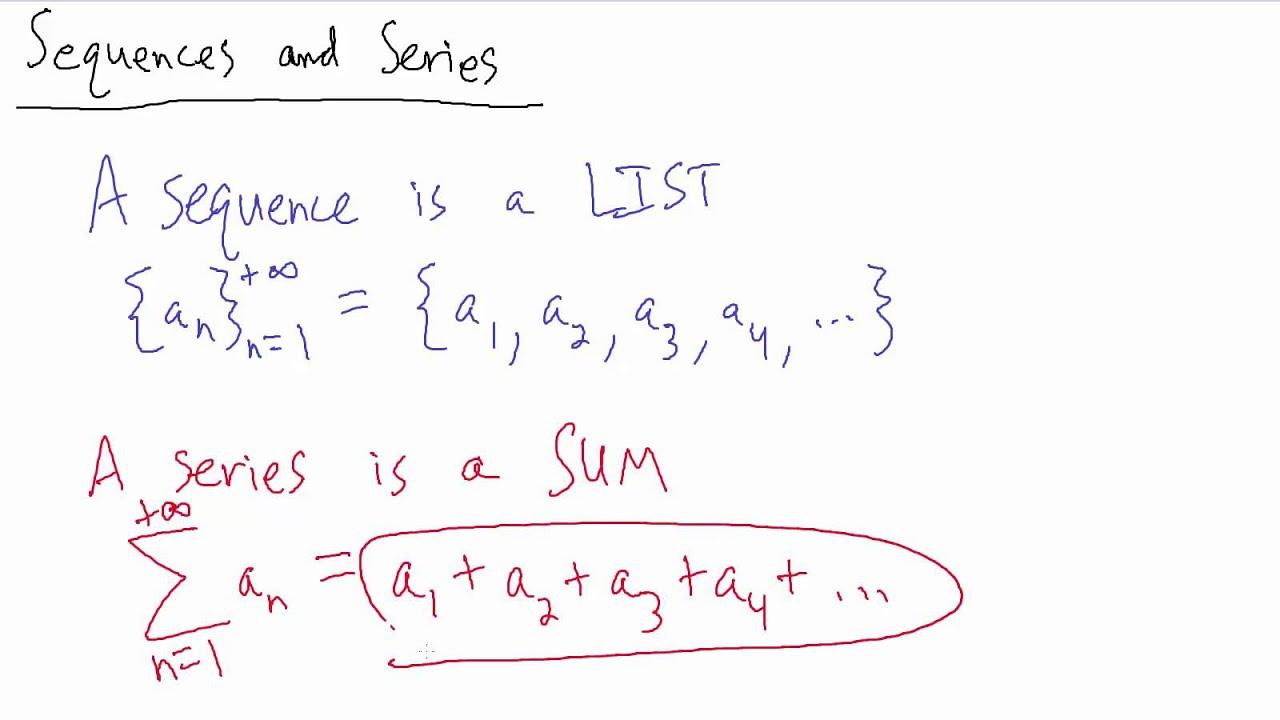 Sequences and Series
A sequence is a LIST
{aₙ}ₙ₌₁⁺∞ = {a₁, a₂, a₃, a₄, ...}
A series is a SUM
+∞
∑ aₙ = a₁ + a₂ + a₃ + a₄ + ...
n=1